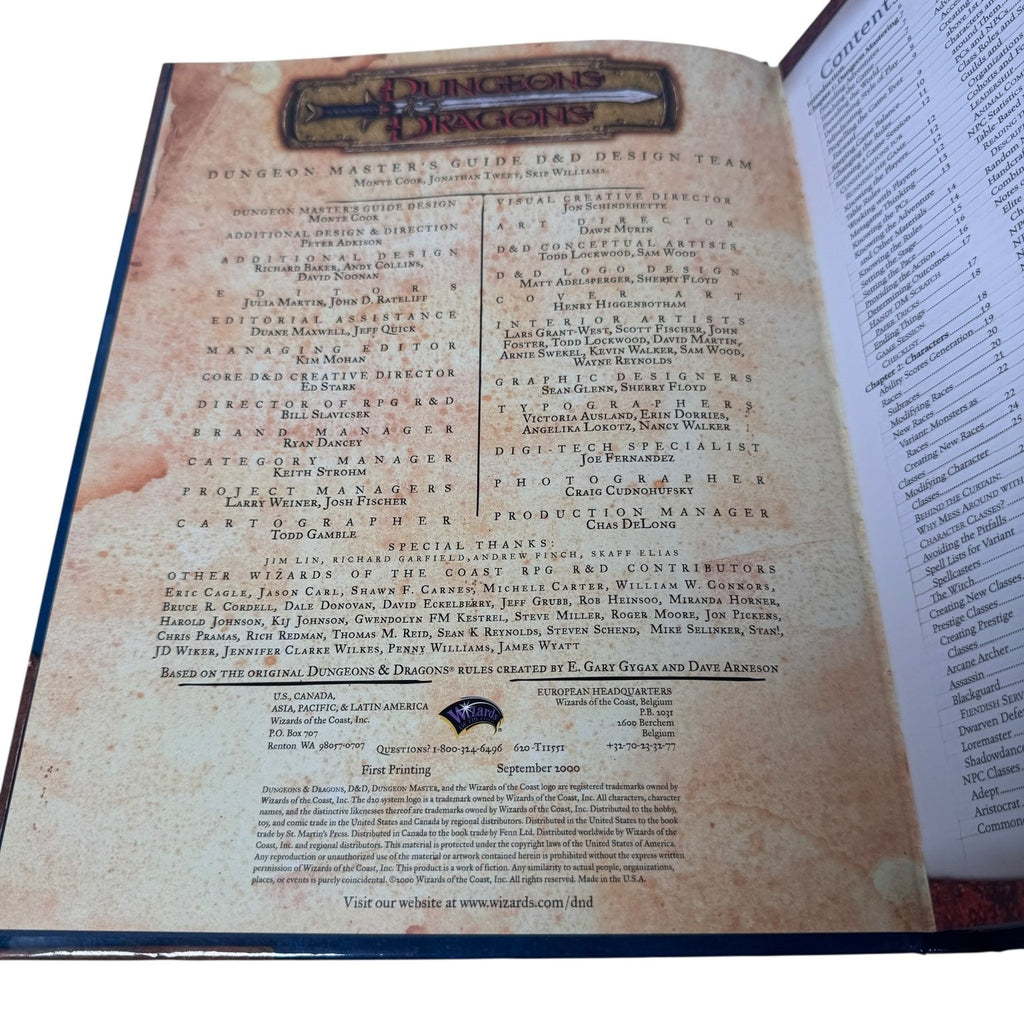 DUNGEONS
DRAGONS
DUNGEON MASTER'S GUIDE D&D DESIGN TEAM
MONTE COOK, JONATHAN TWEET, SKIP WILLIAMS
DUNGEON MASTER'S GUIDE DESIGN
MONTE COOK
ADDITIONAL DESIGN & DIRECTION
PETER ADKISON
ADDITIONAL DESIGN
RICHARD BAKER, ANDY COLLINS,
DAVID NOONAN
EDITORS
JULIA MARTIN, JOHN D. RATELIFF
EDITORIAL ASSISTANCE
DUANE MAXWELL, JEFF QUICK
MANAGING EDITOR
KIM MOHAN
CORE D&D CREATIVE DIRECTOR
ED STARK
DIRECTOR OF RPG R&D
BILL SLAVICSEK
BRAND MANAGER
RYAN DANCEY
CATEGORY MANAGER
KEITH STROHM
PROJECT MANAGERS
LARRY WEINER, JOSH FISCHER
CARTOGRAPHER
TODD GAMBLE
VISUAL CREATIVE DIRECTOR
JON SCHINDEHETTE
ART DIRECTOR
DAWN MURIN
D&D CONCEPTUAL ARTISTS
TODD LOCKWOOD, SAM WOOD
D&D LOGO DESIGN
MATT ADELSPERGER, SHERRY FLOYD
COVER ART
HENRY HIGGENBOTHAM
INTERIOR ARTISTS
LARS GRANT-WEST, SCOTT FISCHER, JOHN
FOSTER, TODD LOCKWOOD, DAVID MARTIN,
ARNIE SWEKEL, KEVIN WALKER, SAM WOOD,
WAYNE REYNOLDS
GRAPHIC DESIGNERS
SEAN GLENN, SHERRY FLOYD
TYPOGRAPHERS
VICTORIA AUSLAND, ERIN DORRIES,
ANGELIKA LOKOTZ, NANCY WALKER
DIGI-TECH SPECIALIST
JOE FERNANDEZ
PHOTOGRAPHER
CRAIG CUDNOHUFSKY
PRODUCTION MANAGER
CHAS DELONG
SPECIAL THANKS:
JIM LIN, RICHARD GARFIELD, ANDREW FINCH, SKAFF ELIAS
OTHER WIZARDS OF THE COAST RPG R&D CONTRIBUTORS
ERIC CAGLE, JASON CARL, SHAWN F. CARNES, MICHELE CARTER, WILLIAM W. CONNORS,
BRUCE R. CORDELL, DALE DONOVAN, DAVID ECKELBERRY, JEFF GRUBB, ROB HEINSOO, MIRANDA HORNER,
HAROLD JOHNSON, KIJ JOHNSON, GWENDOLYN FM KESTREL, STEVE MILLER, ROGER MOORE, JON PICKENS,
CHRIS PRAMAS, RICH REDMAN, THOMAS M. REID, SEAN K REYNOLDS, STEVEN SCHEND, MIKE SELINKER, STAN!,
JD WIKER, JENNIFER CLARKE WILKES, PENNY WILLIAMS, JAMES WYATT
BASED ON THE ORIGINAL DUNGEONS & DRAGONS® RULES CREATED BY E. GARY GYGAX AND DAVE ARNESON
U.S., CANADA,
ASIA, PACIFIC, & LATIN AMERICA
Wizards of the Coast, Inc.
P.O. Box 707
Renton WA 98057-0707
QUESTIONS? 1-800-324-6496 620-T11551
Wizards
OF THE COAST
EUROPEAN HEADQUARTERS
Wizards of the Coast, Belgium
P.B. 2031
2600 Berchem
Belgium
+32-70-23-32-77
First Printing September 2000
DUNGEONS & DRAGONS, D&D, DUNGEON MASTER, and the Wizards of the Coast logo are registered trademarks owned by
Wizards of the Coast, Inc. The d20 system logo is a trademark owned by Wizards of the Coast, Inc. All characters, character
names, and the distinctive likenesses thereof are trademarks owned by Wizards of the Coast, Inc. Distributed to the hobby,
toy, and comic trade in the United States and Canada by regional distributors. Distributed in the United States to the book
trade by St. Martin's Press. Distributed in Canada to the book trade by Fenn Ltd. Distributed worldwide by Wizards of the
Coast, Inc. and regional distributors. This material is protected under the copyright laws of the United States of America.
Any reproduction or unauthorized use of the material or artwork contained herein is prohibited without the express written
permission of Wizards of the Coast, Inc. This product is a work of fiction. Any similarity to actual people, organizations,
places, or events is purely coincidental. ©2000 Wizards of the Coast, Inc. All rights reserved. Made in the U.S.A.
Visit our website at www.wizards.com/dnd
Content
Running the Players 12
Table Rules 12
Working with Players 13
Metagame Thinking 13
Knowing the PCs 14
Knowing the Adventure
and Other Materials 14
Knowing the Rules 14
Setting the Stage 16
Setting the Pace 16
Providing the Action 16
Determining Outcomes 17
HANDY DM SCRATCH
PAPER TRICKS 17
Ending Things 18
GAME SESSION
CHECKLIST 18
Chapter 2: Characters 19
Ability Scores Generation 19
Races 20
Subraces 20
Modifying Races 21
New Races 22
Variant: Monsters as
Races 22
Creating New Races 24
Classes 25
Modifying Character
Classes
BEHIND THE CURTAIN:
WHY MESS AROUND WITH
CHARACTER CLASSES?
Avoiding the Pitfalls
Spell Lists for Variant
Spellcasters
The Witch
Creating New Classes
Prestige Classes
Creating Prestige
Classes
Arcane Archer
Assassin
Blackguard
FIENDISH SERV
Dwarven Defe
Loremaster
Shadowdanc
NPC Classes
Adept
Aristocrat
Common